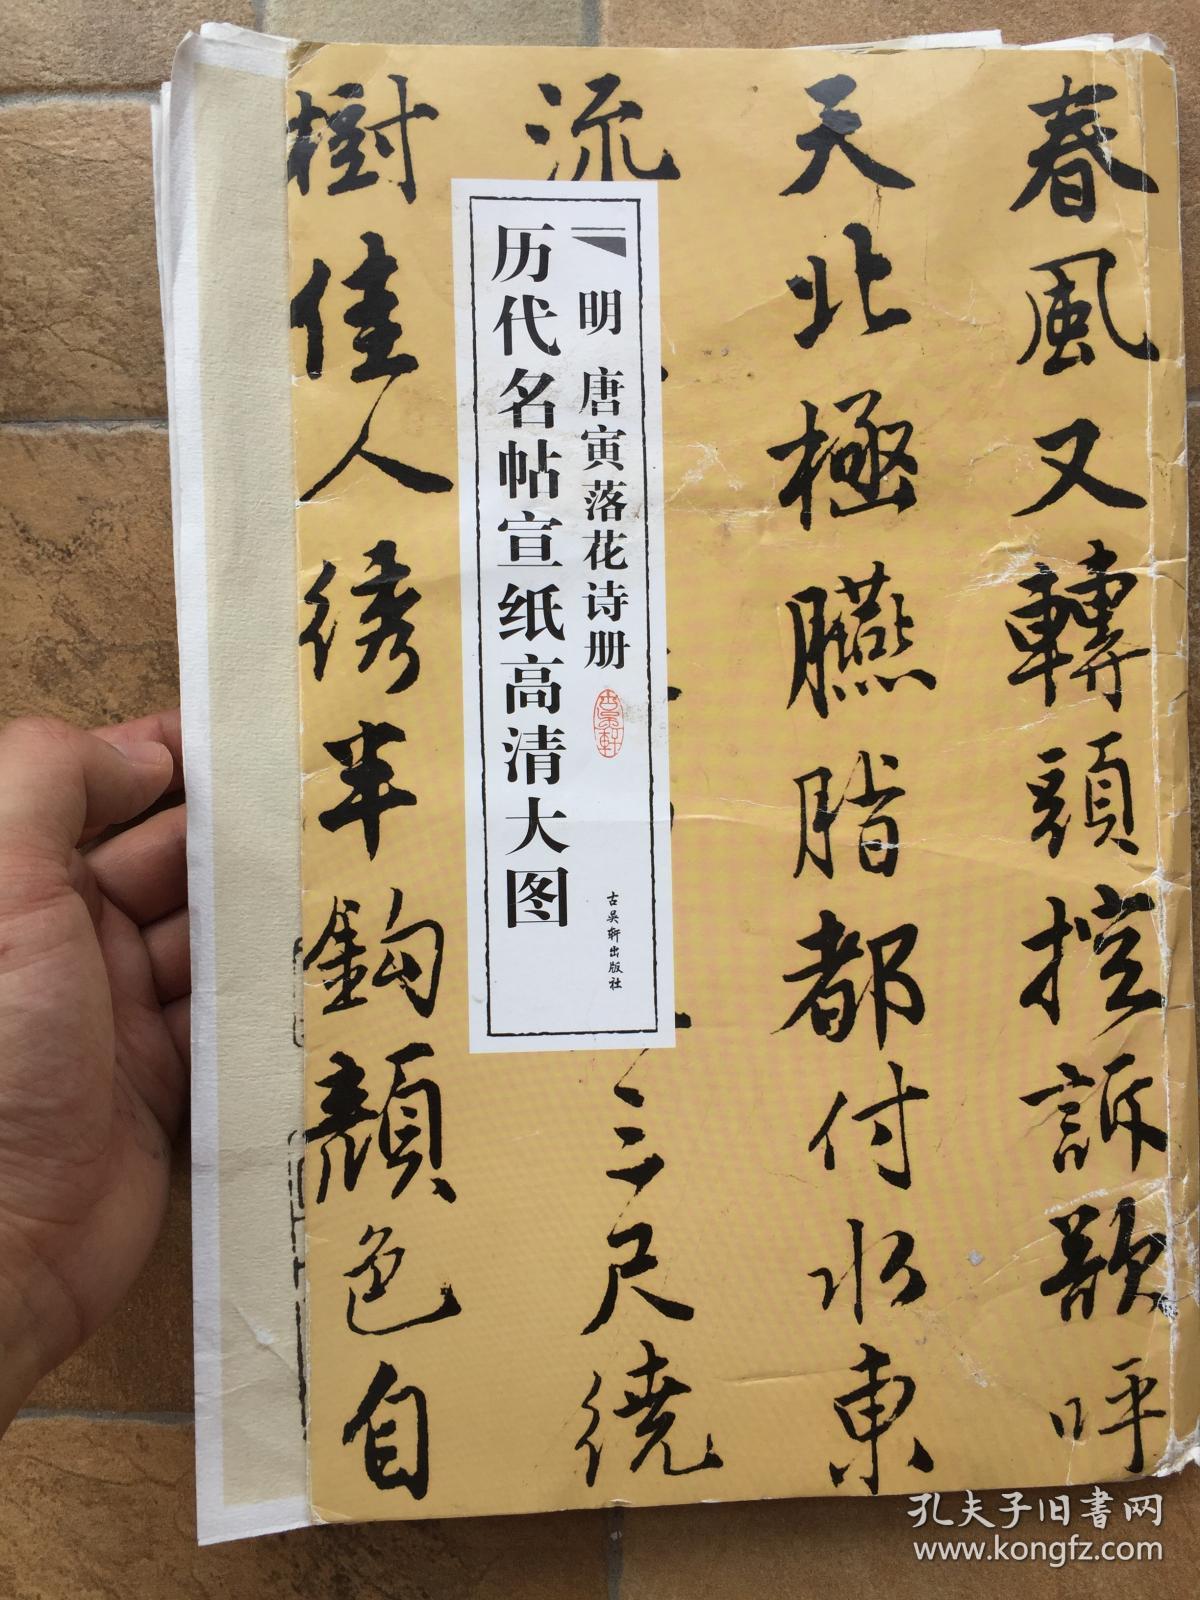 春風又轉頭控訴歌呼
天北極臙脂都付水東
流
三尺繞
樹佳人綉半鈎顏色自
明 唐寅落花诗册
历代名帖宣纸高清大图
古吴轩出版社
孔夫子旧书网
www.kongfz.com